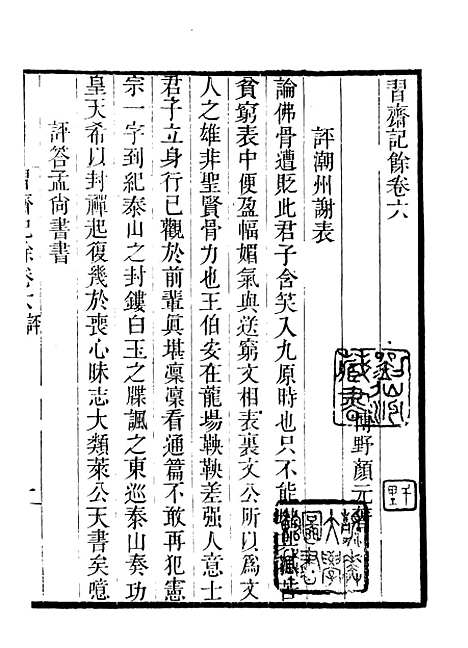 習齋記餘卷六
博野顏元
評潮州謝表
論佛骨遭貶此君子含笑入九原時也只不能
貧窮表中便盈幅媚氣與送窮文相表裏文公所以爲文
人之雄非聖賢骨力也王伯安在龍場鞅鞅差强人意士
君子立身行己觀於前輩眞堪稟稟看通篇不敢再犯憲
宗一字到紀泰山之封鏤白玉之牒諷之東巡泰山奏功
皇天希以封禪起復幾於喪心昧志大類萊公天書矣噫
評答孟尙書書
習齋記餘卷六 評
一